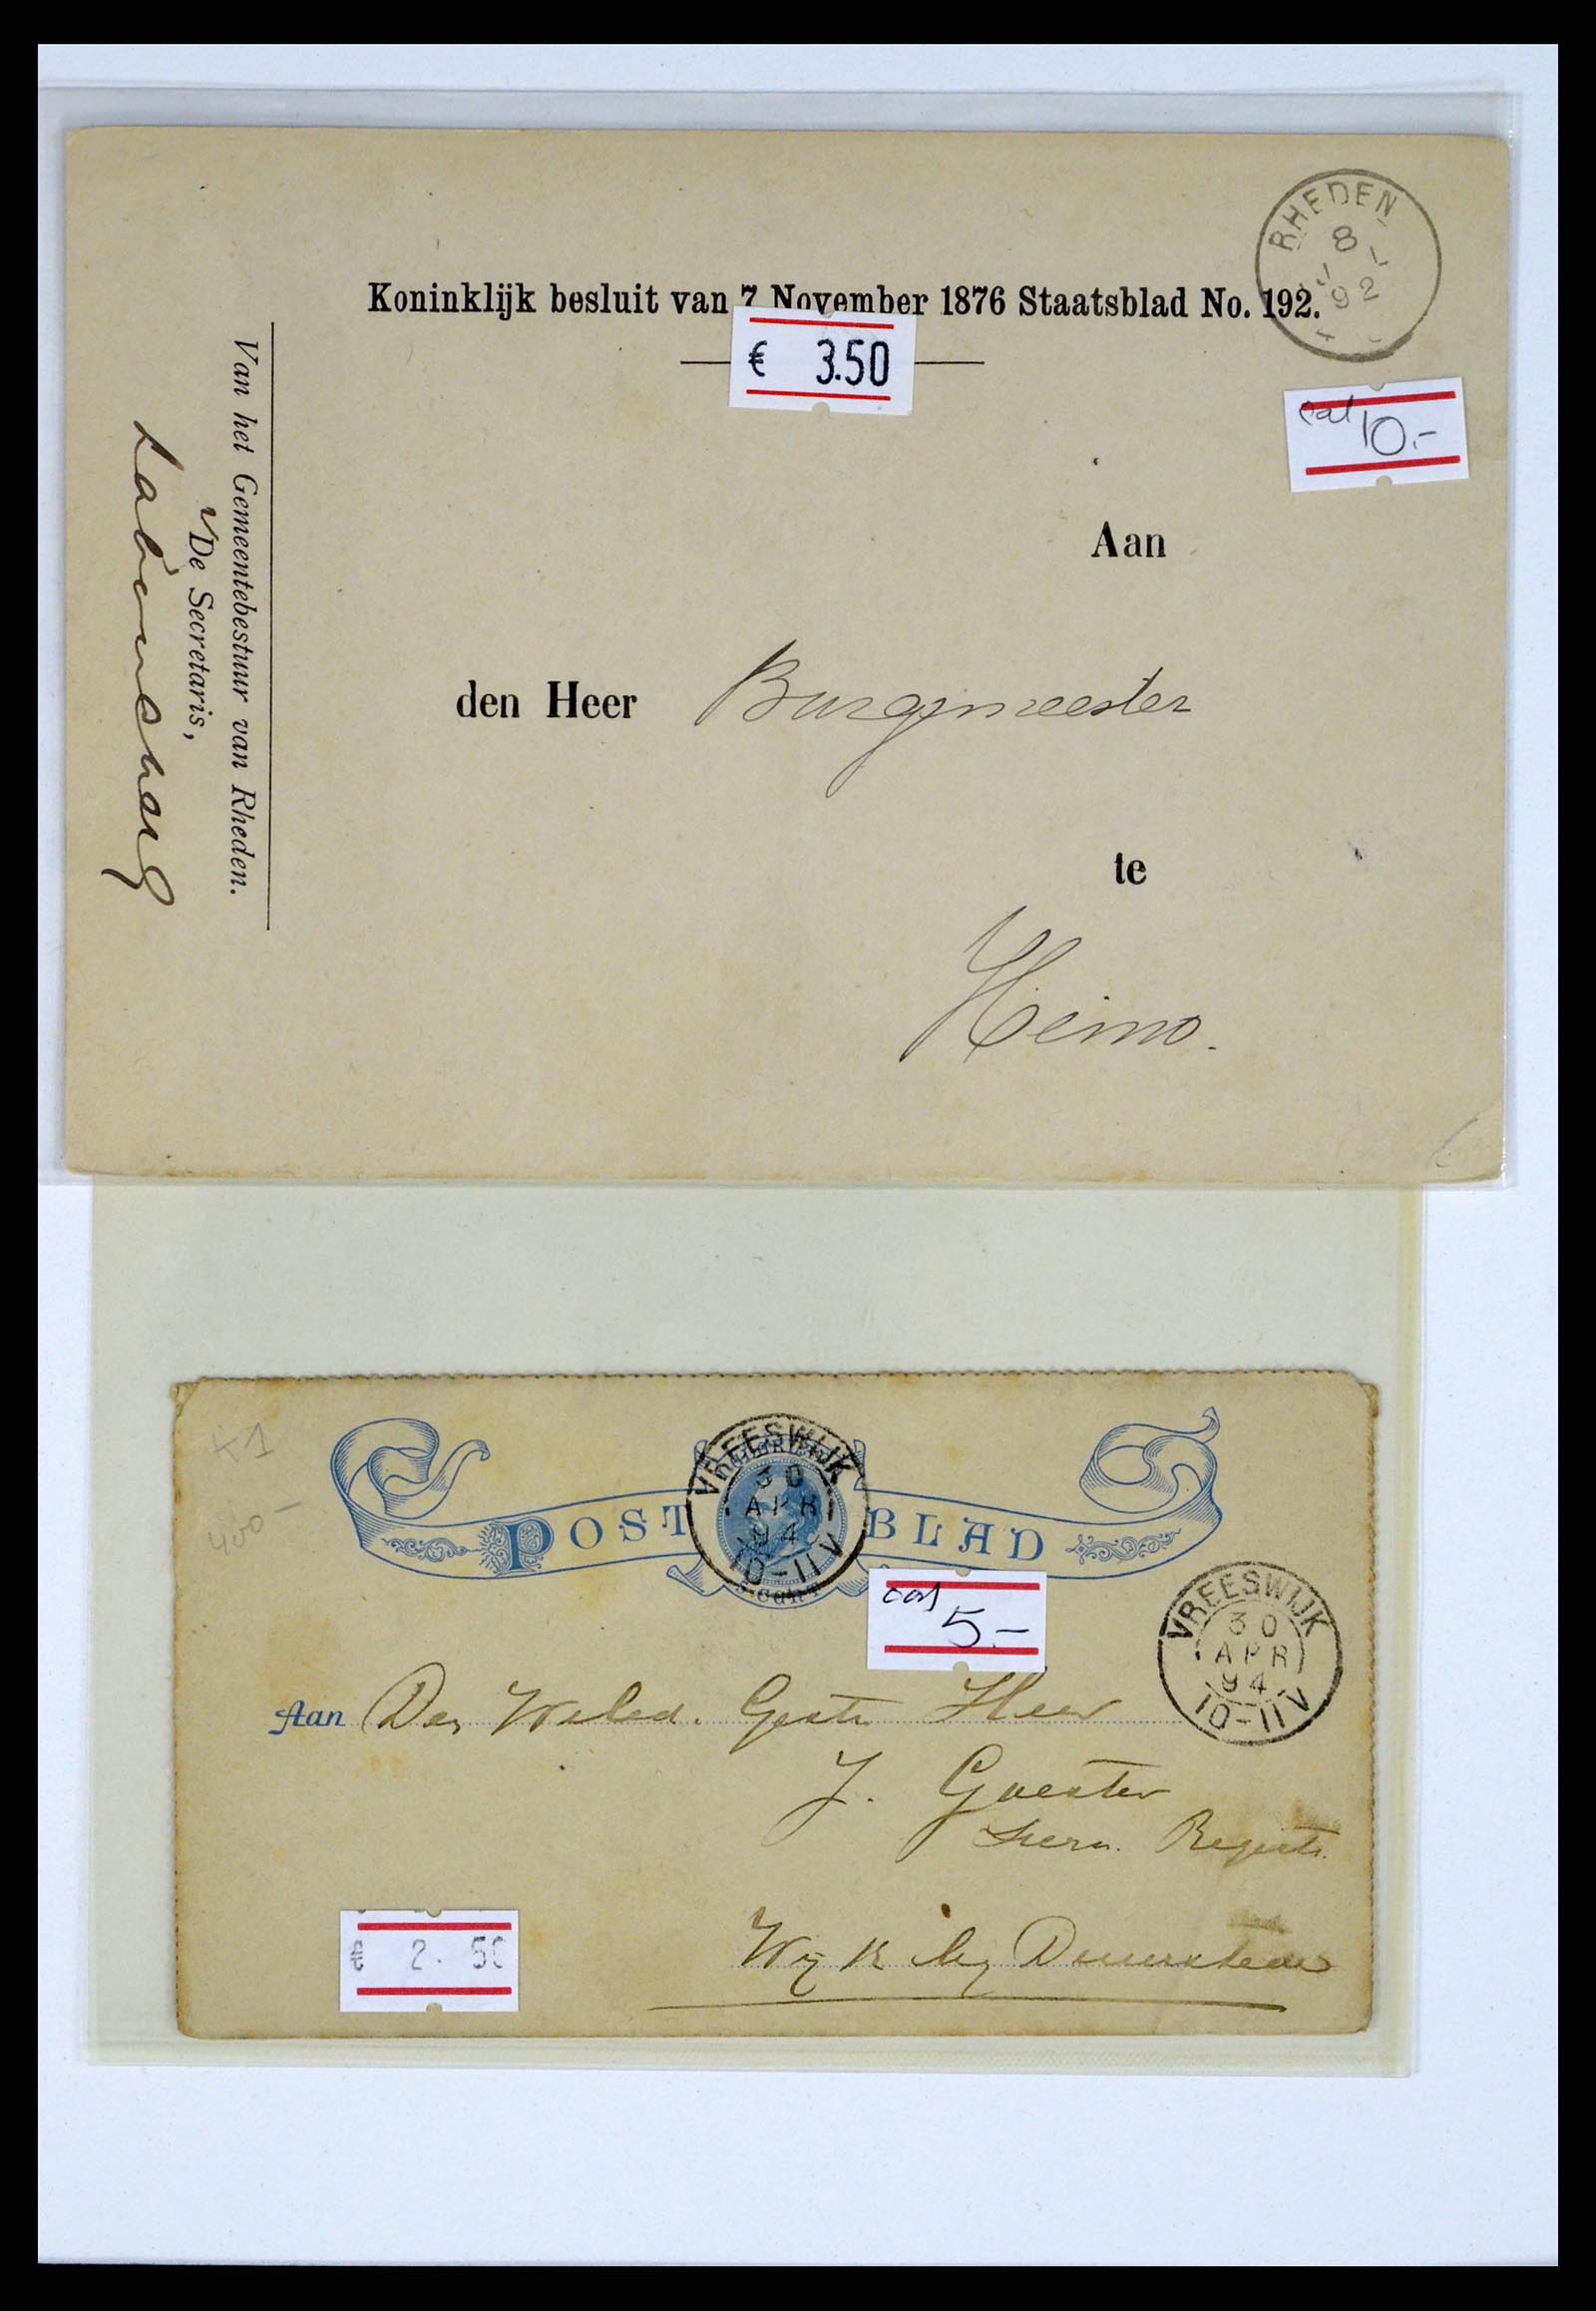 RHEDEN
8
1
92
Koninklijk besluit van 7 November 1876 Staatsblad No. 192.
€ 3.50
cat 10.-
Aan
den Heer Burgemeester
te
Heino.
Van het Gemeentebestuur van Rheden.
De Secretaris,
K1
400-
POSTBLAD
VREESWIJK
30
APR
94
10-11V
5 CENT
cat 5.-
VREESWIJK
30
APR
94
10-11V
Aan Den Weled. Gestr. Heer
J.
Wijk bij Duurstede
€ 2.50